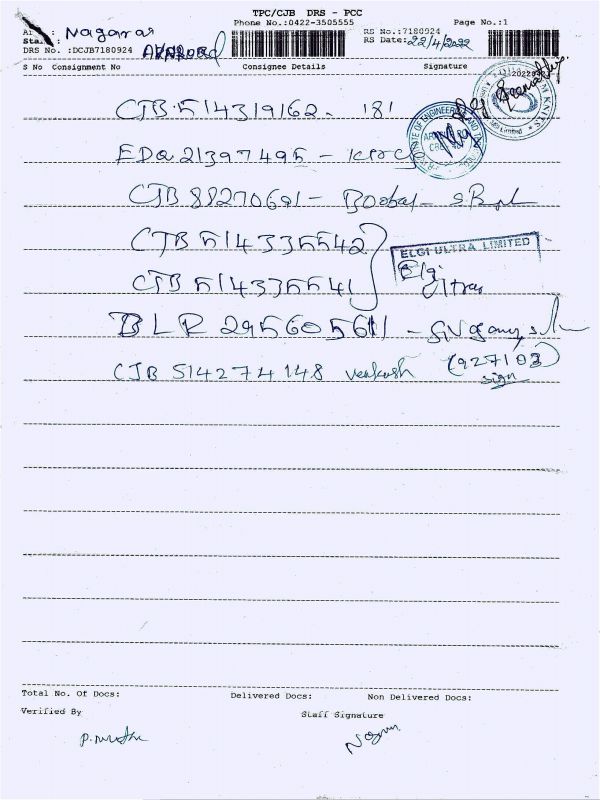 TPC/CJB DRS - PCC
Phone No.:0422-3505555 Page No.:1
Nagaraj RS No.:7180924
RS Date: 22/4/2022
DRS No. :DCJB7180924
S No Consignment No Consignee Details Signature
CJB 514319162 - 181
EDQ 21397495 -
CJB 88270691 -
CJB 514335542
ELGI ULTRA LIMITED
CJB 514335541 Elgi Ultra
BLR 295605611 -
CJB 514274148 Venkash (927103)
sign
Total No. Of Docs: Delivered Docs: Non Delivered Docs:
Verified By Staff Signature